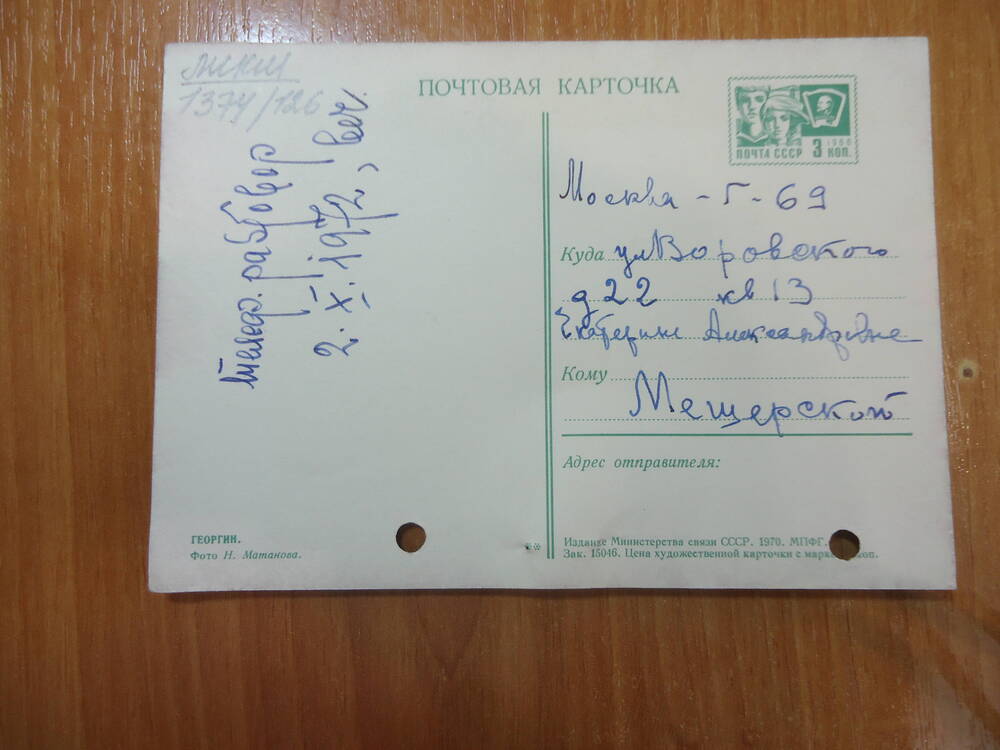 1374/126
телеф. разговор
2. X. 1972, веч.
ПОЧТОВАЯ КАРТОЧКА
ПОЧТА СССР 3 КОП.
Москва - Г - 69
Куда ул Воровского
д 22 кв 13
Екатерине Александровне
Кому
Мещерской
Адрес отправителя:
ГЕОРГИН.
Фото Н. Матанова.
Издание Министерства связи СССР. 1970. МПФГ.
Зак. 15046. Цена художественной карточки с марк коп.